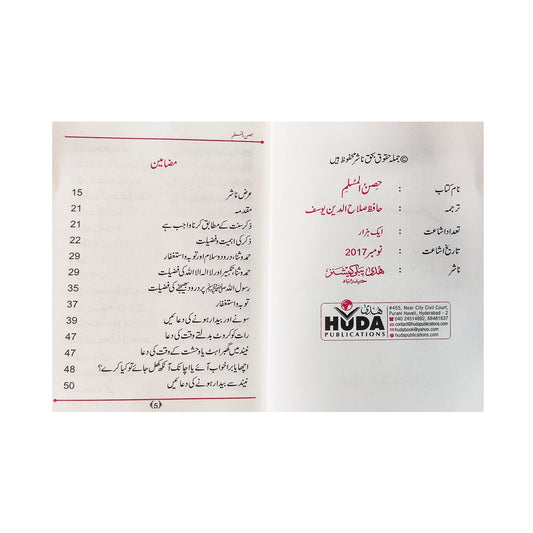 © جملہ حقوق بحق ناشر محفوظ ہیں
نام کتاب : حصن المسلم
ترجمہ : حافظ صلاح الدین یوسف
تعداد اشاعت : ایک ہزار
تاریخ اشاعت : نومبر 2017
ناشر : ھدیٰ پبلی کیشنز
حیدرآباد
ھدیٰ
HUDA
PUBLICATIONS
#455, Near City Civil Court,
Purani Haveli, Hyderabad - 2
040 24514892, 66481637
contact@hudapublications.com
hudabook@yahoo.com
hudapublications.com
حصن المسلم
مضامین
عرض ناشر 15
مقدمہ 21
ذکر سنت کے مطابق کرنا واجب ہے 21
ذکر کی اہمیت و فضیلت 22
حمد و ثنا، درود و سلام اور توبہ و استغفار 29
حمد و ثنا، تکبیر اور لا الہ الا اللہ کی فضیلت 29
رسول اللہ ﷺ پر درود بھیجنے کی فضیلت 35
توبہ و استغفار 37
سونے اور بیدار ہونے کی دعائیں 39
رات کو کروٹ بدلتے وقت کی دعا 47
نیند میں گھبراہٹ یا وحشت کے وقت کی دعا 47
اچھا یا برا خواب آئے یا اچانک آنکھ کھل جائے تو کیا کرے؟ 48
نیند سے بیدار ہونے کی دعائیں 50
5